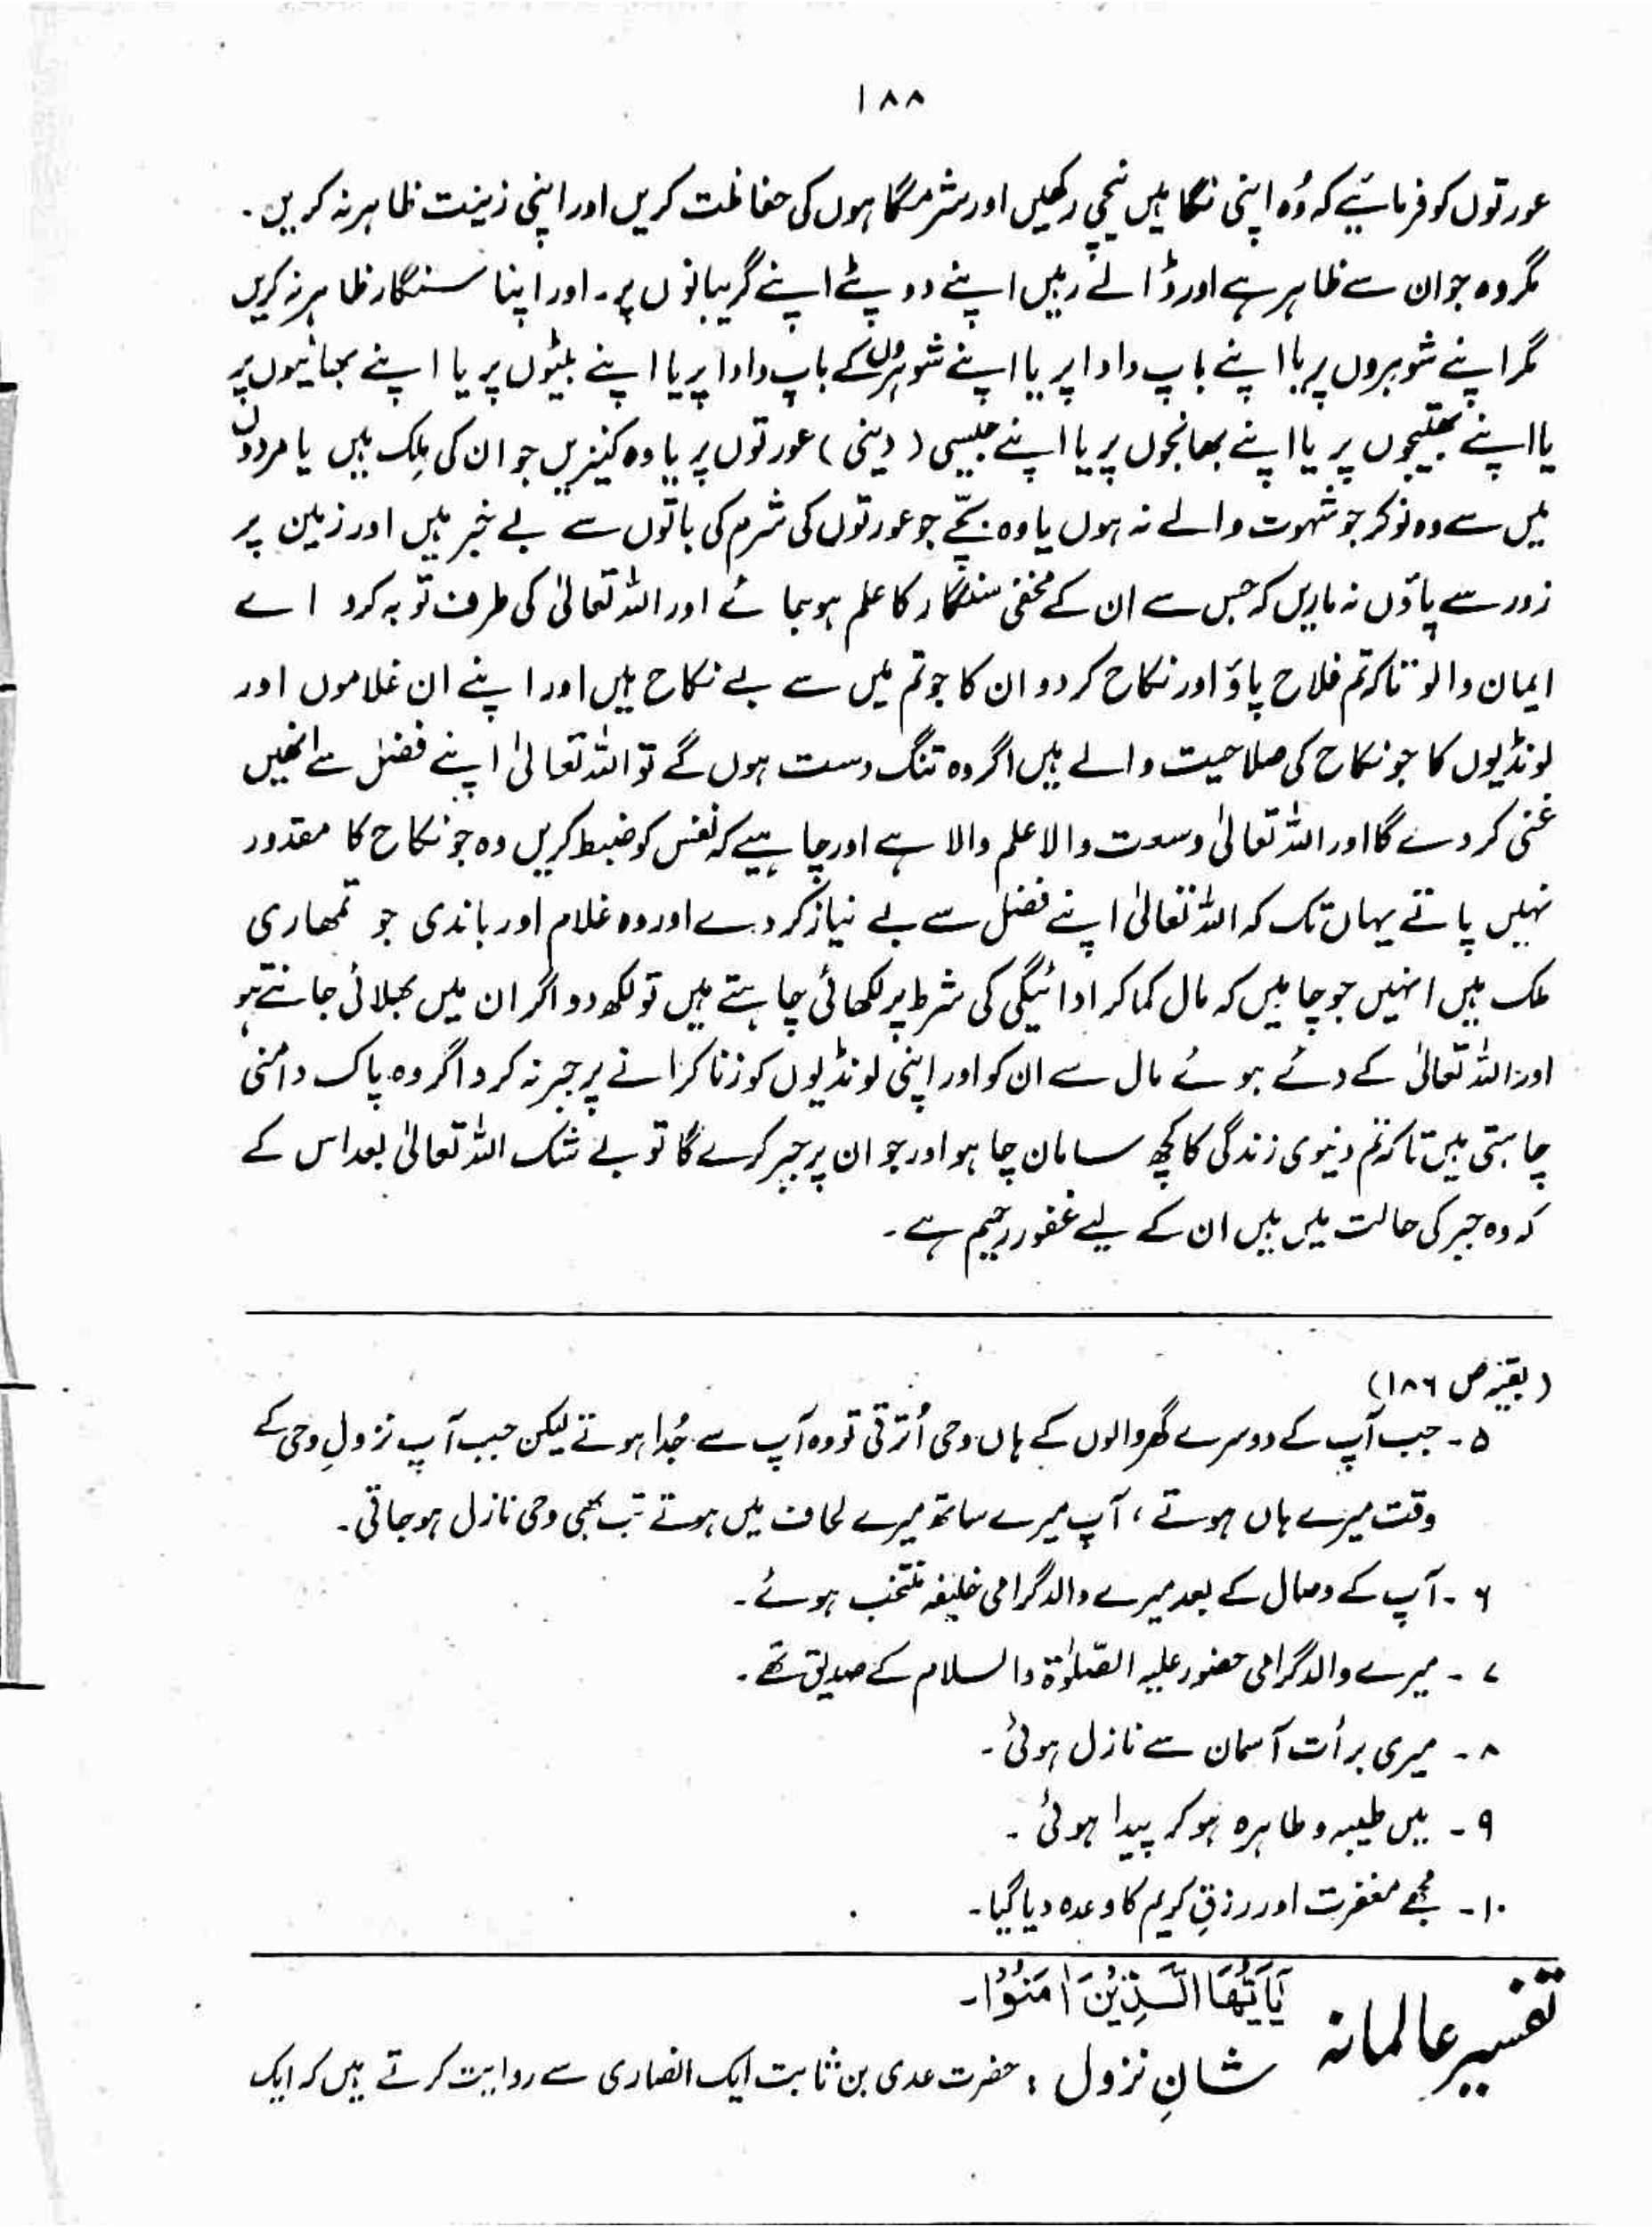 ۱۸۸
عورتوں کو فرمائیے کہ وُہ اپنی نگاہیں نیچی رکھیں اور شرمگاہوں کی حفاظت کریں اور اپنی زینت ظاہر نہ کریں۔
مگر وہ جو ان سے ظاہر ہے اور ڈالے رہیں اپنے دوپٹے اپنے گریبانوں پر۔ اور اپنا سنگار ظاہر نہ کریں
مگر اپنے شوہروں پر یا اپنے باپ دادا پر یا اپنے شوہروں کے باپ دادا پر یا اپنے بیٹوں پر یا اپنے بھائیوں پر
یا اپنے بھتیجوں پر یا اپنے بھانجوں پر یا اپنے جیسی (دینی) عورتوں پر یا وہ کنیزیں جو ان کی مِلک ہیں یا مردوں
میں سے وہ نوکر جو شہوت والے نہ ہوں یا وہ بچّے جو عورتوں کی شرم کی باتوں سے بے خبر ہیں اور زمین پر
زور سے پاؤں نہ ماریں کہ جس سے ان کے مخفی سنگار کا علم ہو جائے اور اللہ تعالیٰ کی طرف توبہ کرو اے
ایمان والو تاکہ تم فلاح پاؤ اور نکاح کر دو ان کا جو تم میں سے بے نکاح ہیں اور اپنے ان غلاموں اور
لونڈیوں کا جو نکاح کی صلاحیت والے ہیں اگر وہ تنگ دست ہوں گے تو اللہ تعالیٰ اپنے فضل سے انھیں
غنی کر دے گا اور اللہ تعالیٰ وسعت والا علم والا ہے اور چاہیے کہ نفس کو ضبط کریں وہ جو نکاح کا مقدور
نہیں پاتے یہاں تک کہ اللہ تعالیٰ اپنے فضل سے بے نیاز کر دے اور وہ غلام اور باندی جو تمھاری
ملک ہیں انہیں جو چاہیں کہ مال کما کر ادائیگی کی شرط پر لکھائی چاہتے ہیں تو لکھ دو اگر ان میں بھلائی جانتے ہو
اور اللہ تعالیٰ کے دئے ہوئے مال سے ان کو اور اپنی لونڈیوں کو زنا کرانے پر جبر نہ کرو اگر وہ پاک دامنی
چاہتی ہیں تاکہ تم دنیوی زندگی کا کچھ سامان چاہو اور جو ان پر جبر کرے گا تو بے شک اللہ تعالیٰ بعد اس کے
کہ وہ جبر کی حالت میں ہیں ان کے لیے غفور رحیم ہے۔
(بقیہ ص ۱۸۶)
۵۔ جب آپ کے دوسرے گھر والوں کے ہاں وحی اُترتی تو وہ آپ سے جُدا ہوتے لیکن جب آپ نزولِ وحی کے
وقت میرے ہاں ہوتے، آپ میرے ساتھ میرے لحاف میں ہوتے تب بھی وحی نازل ہو جاتی۔
۶۔ آپ کے وصال کے بعد میرے والد گرامی خلیفہ منتخب ہوئے۔
۷۔ میرے والد گرامی حضور علیہ الصّلوٰۃ والسلام کے صدیق تھے۔
۸۔ میری برأت آسمان سے نازل ہوئی۔
۹۔ میں طیبہ و طاہرہ ہو کر پیدا ہوئی۔
۱۰۔ مجھے مغفرت اور رزقِ کریم کا وعدہ دیا گیا۔
تفسیر عالمانہ يٰٓاَيُّهَا الَّذِيْنَ اٰمَنُوْا۔
شانِ نزول : حضرت عدی بن ثابت ایک انصاری سے روایت کرتے ہیں کہ ایک